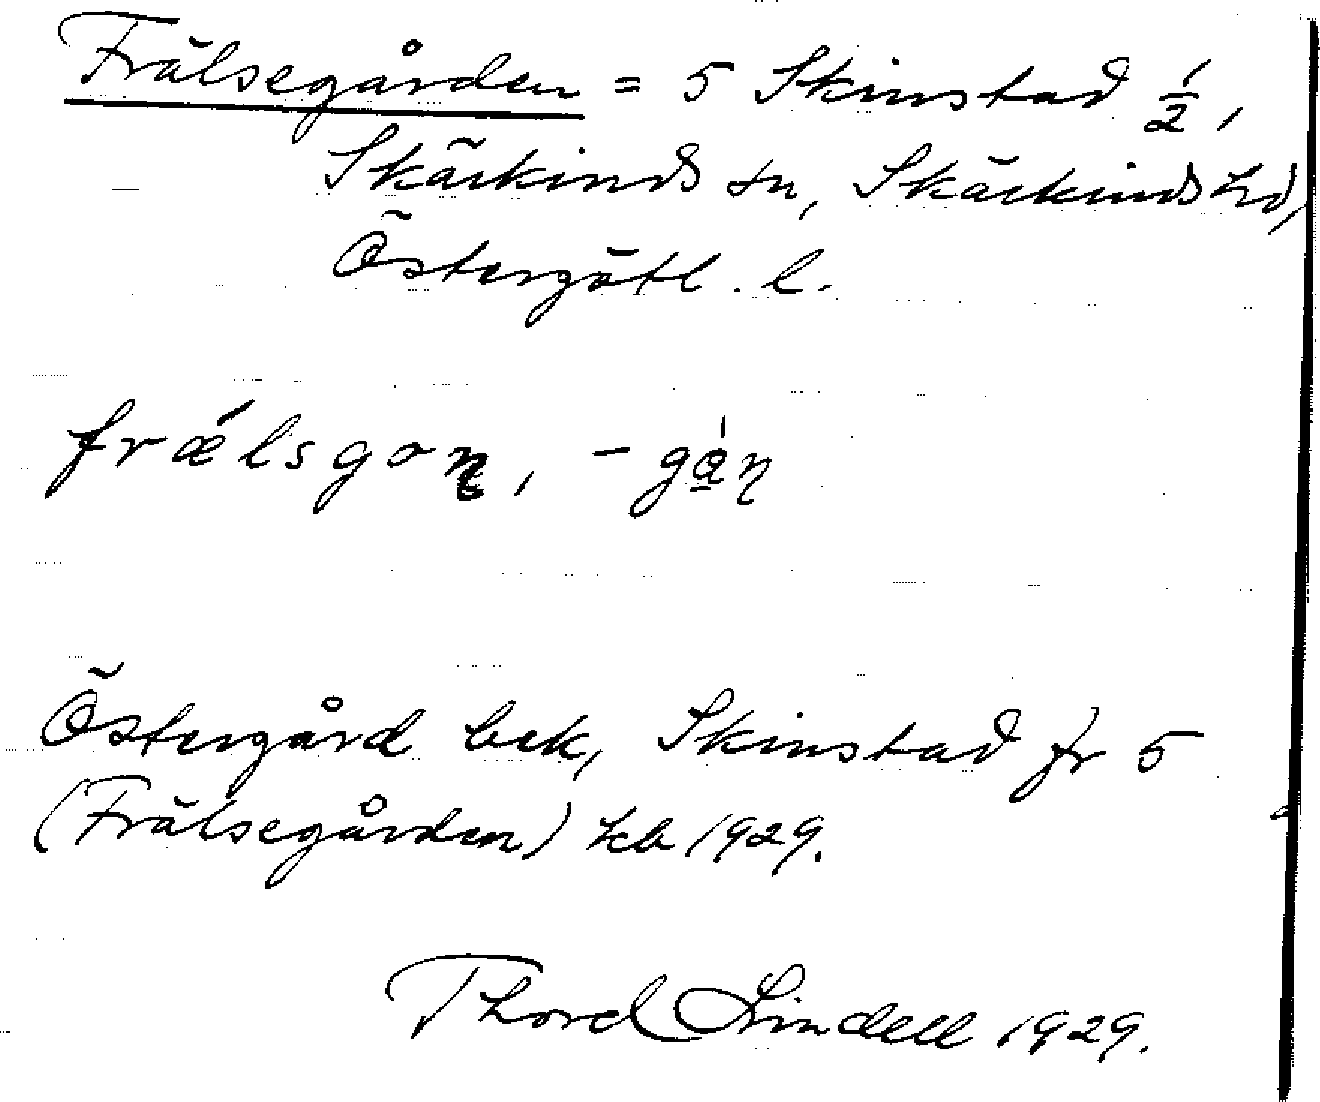 Frälsegården = 5 Skinstad 1/2,
Skärkinds sn, Skärkinds hd,
Östergötl. l.
frǽlsgoɳ, -gɑ̱́ɳ
Östergård bek, Skinstad fr 5
(Frälsegården) kb 1929.
Thord Lindell 1929.